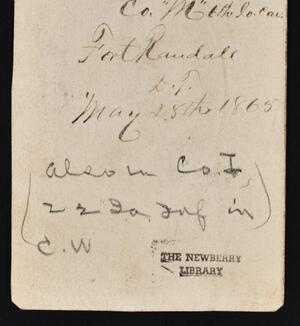 Co. "M" 6th Io. Cav.
Fort Randall
D.T.
May 28th 1865
(also in Co. I,
22 Ia Inf in)
C.W
THE NEWBERRY
LIBRARY